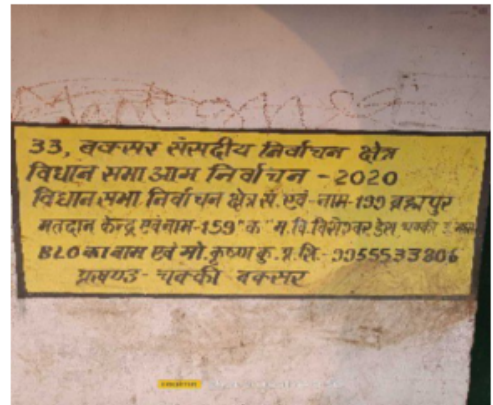 33, बक्सर संसदीय निर्वाचन क्षेत्र
विधान सभा आम निर्वाचन - 2020
विधान सभा निर्वाचन क्षेत्र सं. एवं - नाम - 199 ब्रह्मपुर
मतदान केन्द्र एवं नाम - 159 "क" म. वि. विशेश्वर डेरा, चक्की
BLO का नाम एवं मो. कृष्णा कु. प्र. शि. - 9955533806
प्रखण्ड - चक्की बक्सर